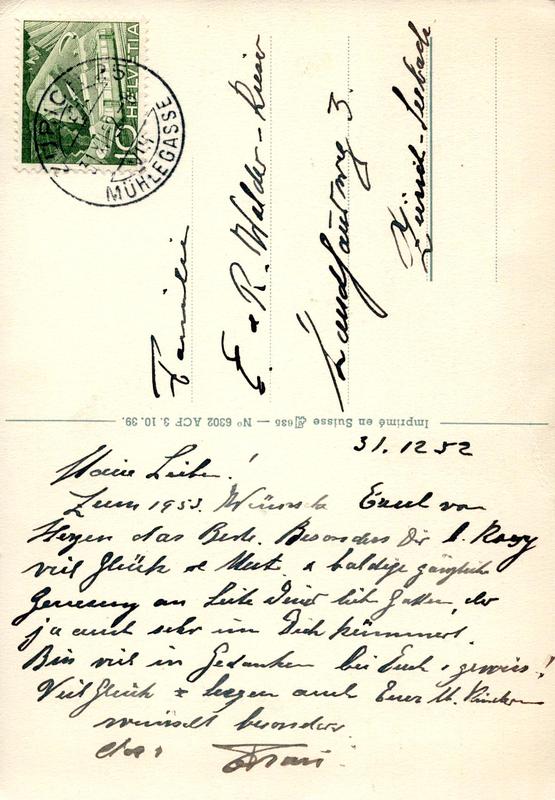 HELVETIA
10
ZÜRICH
MÜHLEGASSE
Familie
E. & R. Walder-Rieser
3.
Zürich-Seebach
Imprimé en Suisse 635 — Nº 6302 ACP 3. 10. 39.
31.12 52
Meine Lieben!
Zum 1953. Wünsch Euch von
Herzen das Beste. Besonders Dir l. Rosy
viel Glück & Mut & baldige gänzliche
Genesung an Seite Deines lieb Gatten, der
ja auch sehr um Dich kümmert.
Bin viel in Gedanken bei Euch, gewiss!
Viel Glück & Segen auch Euer lb. Kindern
wünscht besonders
das